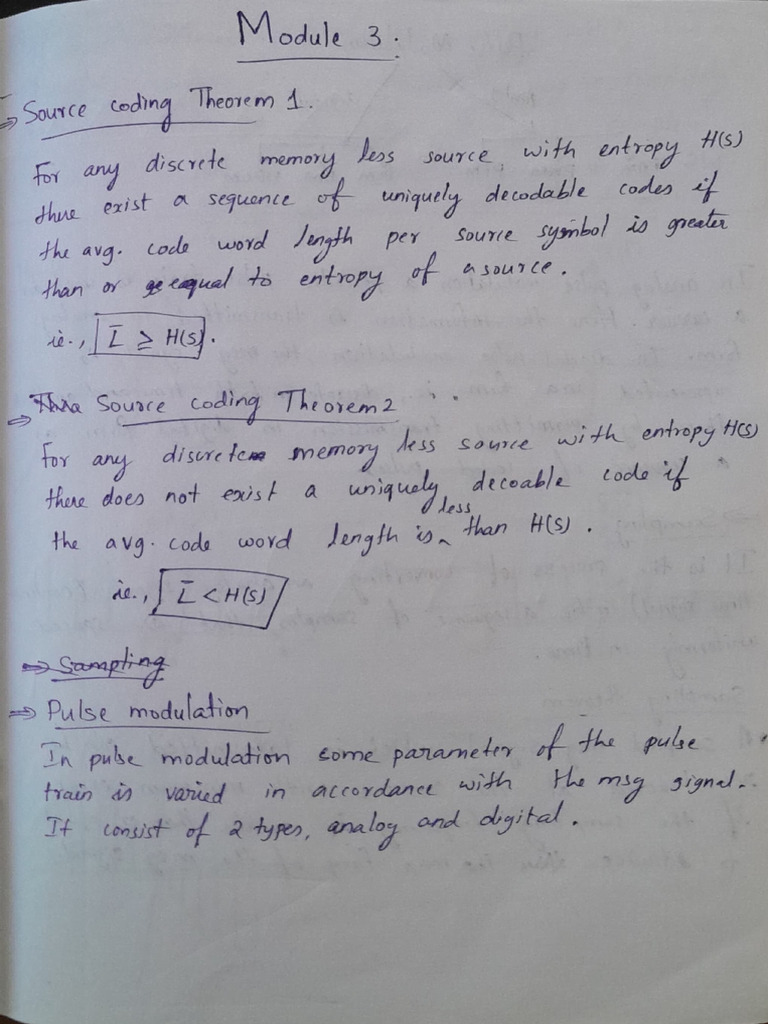 Module 3.
⇒ Source coding Theorem 1.
For any discrete memory less source with entropy H(S)
there exist a sequence of uniquely decodable codes if
the avg. code word length per source symbol is greater
than or equal to entropy of a source.
ie., L̄ ≥ H(S).
⇒ Source coding Theorem 2
For any discrete memory less source with entropy H(S)
there does not exist a uniquely decoable code if
the avg. code word length is less than H(S).
ie., L̄ < H(S)
⇒ Sampting
⇒ Pulse modulation
In pulse modulation some parameter of the pulse
train is varied in accordance with the msg signal.
It consist of 2 types, analog and digital.